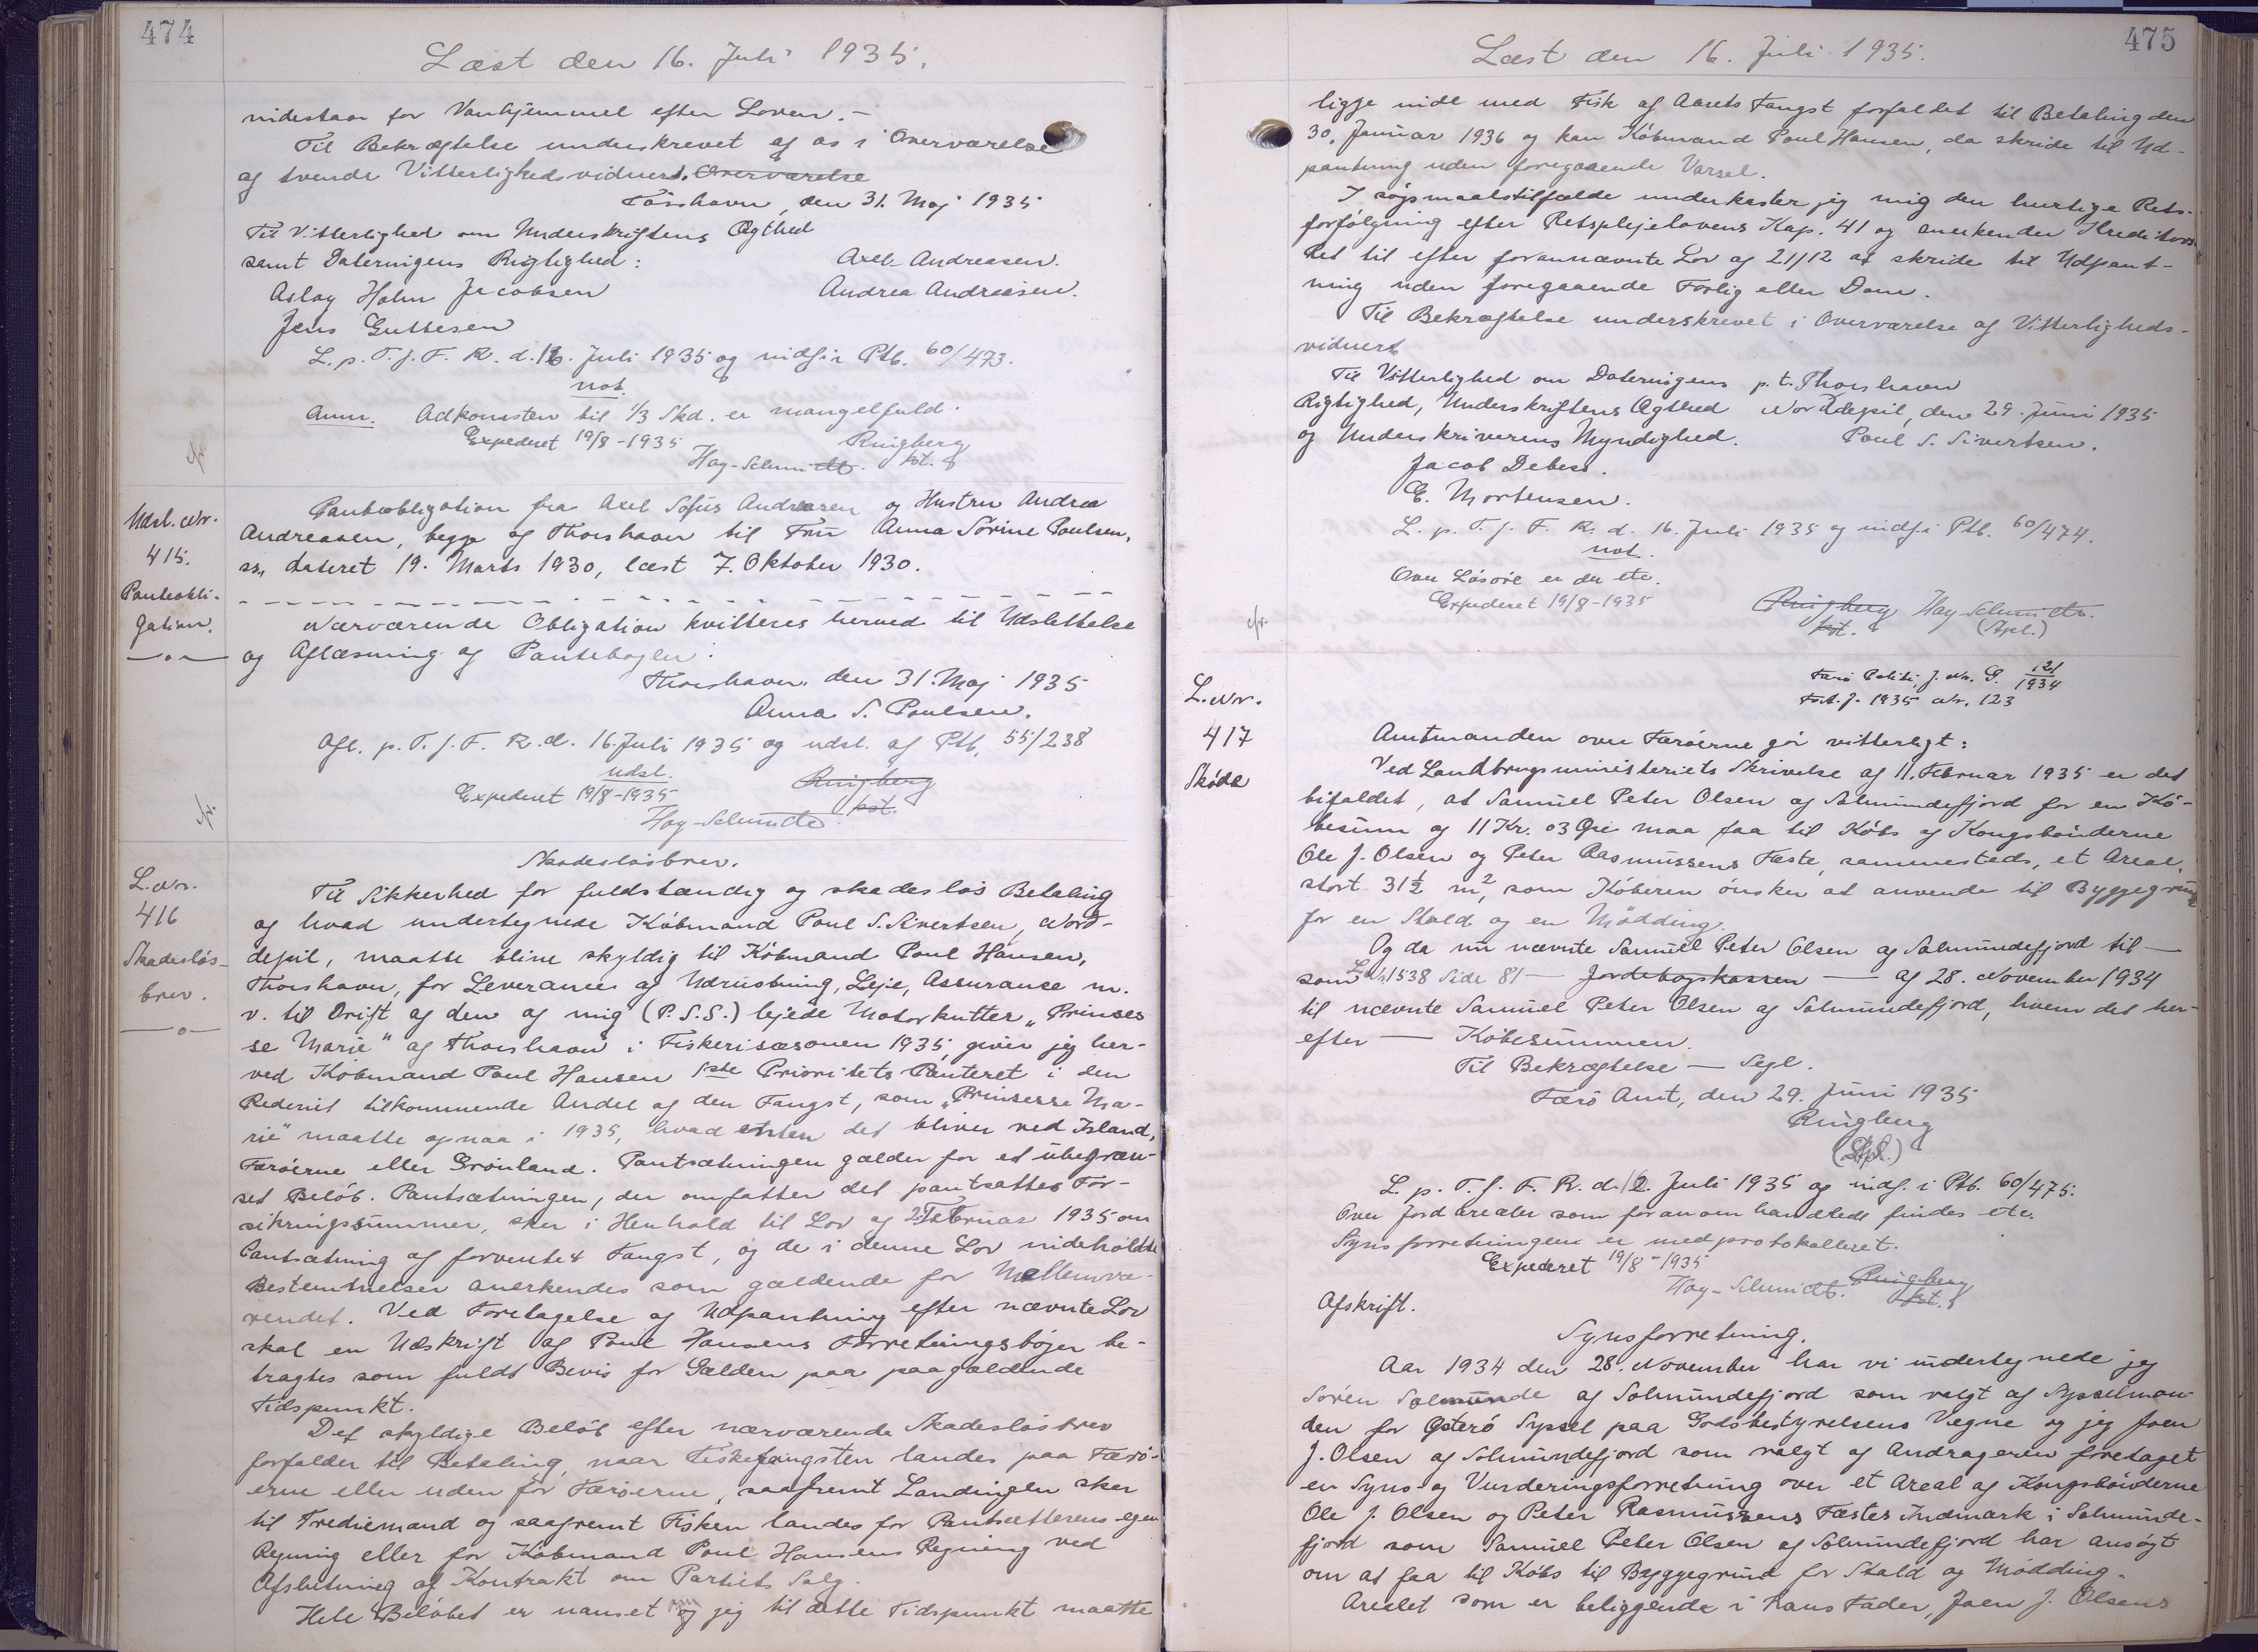 474
Læst den 16. Juli 1935.
indestaar for Vanhjemmel efter Loven.-
Til Bekræftelse underskrevet af os i Overværelse
af tvende Vitterlighedsvidner. Overværelse
Tórshavn, den 31. Maj 1935
Til Vitterlighed om Underskriftens Ægthed
samt Dateringens Rigtighed:
Axel Andreasen.
Aslag Holm Jacobsen
Andrea Andreasen.
Jens Guttesen
L. p. T. f. F. R. d. 16. Juli 1935 og indf. i Ptb. 60/473.
not.
Anm. Adkomsten til 1/3 Skd. er mangelfuld.
Expederet 19/8-1935
Ringberg
Hoy-Schmidt. kst.
Udsl. Nr.
415.
Panteobli-
gation.
Panteobligation fra Axel Sofus Andreasen og Hustru Andrea
Andreasen, begge af Thorshavn til Fru Anna Sörine Poulsen,
ss., dateret 19. Marts 1930, læst 7. Oktober 1930.
Nærværende Obligation kvitteres herved til Udslettelse
og Aflæsning af Pantebogen.
Thorshavn, den 31. Maj 1935
Anna S. Poulsen.
Afl. p. T. f. F. R. d. 16. Juli 1935 og udsl. af Ptb. 55/238
udsl.
Expederet 19/8-1935
Ringberg
kst.
Hoy-Schmidt.
L. Nr.
416
Skadeslös-
brev.
Skadeslösbrev.
Til Sikkerhed for fuldstændig og skadeslös Betaling
af hvad undertegnede Köbmand Poul S. Sivertsen, Nord-
depil, maatte blive skyldig til Köbmand Poul Hansen,
Thorshavn, for Leverancer af Udrustning, Leje, Assurance m.
v. til Drift af den af mig (P.S.S.) lejede Motorkutter "Prinses
se Marie" af Thorshavn i Fiskerisæsonen 1935, giver jeg her-
ved Köbmand Poul Hansen 1ste Prioritets Panteret i den
Rederiet tilkommende Andel af den Fangst, som "Prinsesse Ma-
rie" maatte opnaa i 1935, hvad enten det bliver ved Island,
Færöerne eller Grönland. Pantsætningen gælder for et ubegræn-
set Belöb. Pantsætningen, der omfatter det pantsattes For-
sikringssummer, sker i Henhold til Lov af 2. Februar 1935 om
Pantsætning af forventet Fangst, og de i denne Lov indeholdte
Bestemmelser anerkendes som gældende for Mellemvæ-
rendet. Ved Foretagelse af Udpantning efter nævnte Lov
skal en Udskrift af Poul Hansens Forretningsböger be-
tragtes som fuldt Bevis for Gælden paa paagældende
Tidspunkt.
Det skyldige Belöb efter nærværende Skadeslösbrev
forfalder til Betaling, naar Fiskefangsten landes paa Færö-
erne eller uden for Færöerne, saafremt Landingen sker
til Trediemand og saafremt Fisken landes for Pantsætterens egen
Regning eller for Köbmand Poul Hansens Regning ved
Afslutning af Kontrakt om Partiets Salg.
Hele Belöbet er uanset om jeg til dette Tidspunkt maatte
475
Læst den 16. Juli 1935.
ligge inde med Fisk af Aarets Fangst forfaldet til Betaling den
30. Januar 1936 og kan Köbmand Poul Hansen, da skride til Ud-
pantning uden foregaaende Varsel.
I sögsmaalstilfælde underkaster jeg mig den hurtige Rets-
forfölgning efter Retsplejelovens Kap. 41 og anerkender Kreditors
Ret til efter forannævnte Lov af 21/12 at skride til Udpant-
ning uden foregaaende Forlig eller Dom.
Til Bekræftelse underskrevet i Overværelse af Vitterligheds-
vidner.
Til Vitterlighed om Dateringens p. t. Thorshavn
Rigtighed, Underskriftens Ægthed Norddepil, den 29. Juni 1935
og Underskriverens Myndighed. Poul S. Sivertsen.
Jacob Debess.
E. Mortensen.
L. p. T. f. F. R. d. 16. Juli 1935 og indf. i Ptb. 60/474.
not.
Over Lösöre er der etc.
Expederet 19/8-1935
Ringberg Hoy-Schmidt.
kst. (Stpl.)
L. Nr.
417
Sköde
Færö Politi J. Nr. G. 121/1934
F.A.J. 1935 Nr. 123
Amtmanden over Færöerne gör vitterligt:
Ved Landbrugsministeriets Skrivelse af 11. Februar 1935 er det
bifaldet, at Samuel Peter Olsen af Solmundefjord for en Kö-
besum af 11 Kr. 03 Øre maa faa til Köbs af Kongsbönderne
Ole J. Olsen og Peter Rasmussens Fæste, sammesteds, et Areal,
stort 31½ m², som Köberen önsker at anvende til Byggegrund
for en Stald og en Mödding.
Og da nu nævnte Samuel Peter Olsen af Solmundefjord til —
som L. Nr. 1538 Side 81 — Jordebogskassen — af 28. November 1934
til nævnte Samuel Peter Olsen af Solmundefjord, hvem det her-
efter — Köbesummen.
Til Bekræftelse — Segl.
Færö Amt, den 29. Juni 1935
Ringberg
(Stpl.)
L. p. T. f. F. R. d. 16. Juli 1935 og indf. i Ptb. 60/475.
Over Jordarealer som foranomhandlede findes etc.
Synsforretningen er medprotokolleret.
Expederet 19/8-1935
Hoy-Schmidt. Ringberg
kst.
Afskrift.
Synsforretning.
Aar 1934 den 28. November har vi undertegnede jeg
Sören Solmunde af Solmundefjord som valgt af Sysselman-
den for Österö Syssel paa Godsbestyrelsens Vegne og jeg Joen
J. Olsen af Solmundefjord som valgt af Andrageren foretaget
en Syns og Vurderingsforretning over et Areal af Kongsbönderne
Ole J. Olsen og Peter Rasmussens Fæstes Indmark i Solmunde-
fjord som Samuel Peter Olsen af Solmundefjord har ansögt
om at faa til Köbs til Byggegrund for Stald og Mödding.
Arealet som er beliggende i hans Fader, Joen J. Olsens